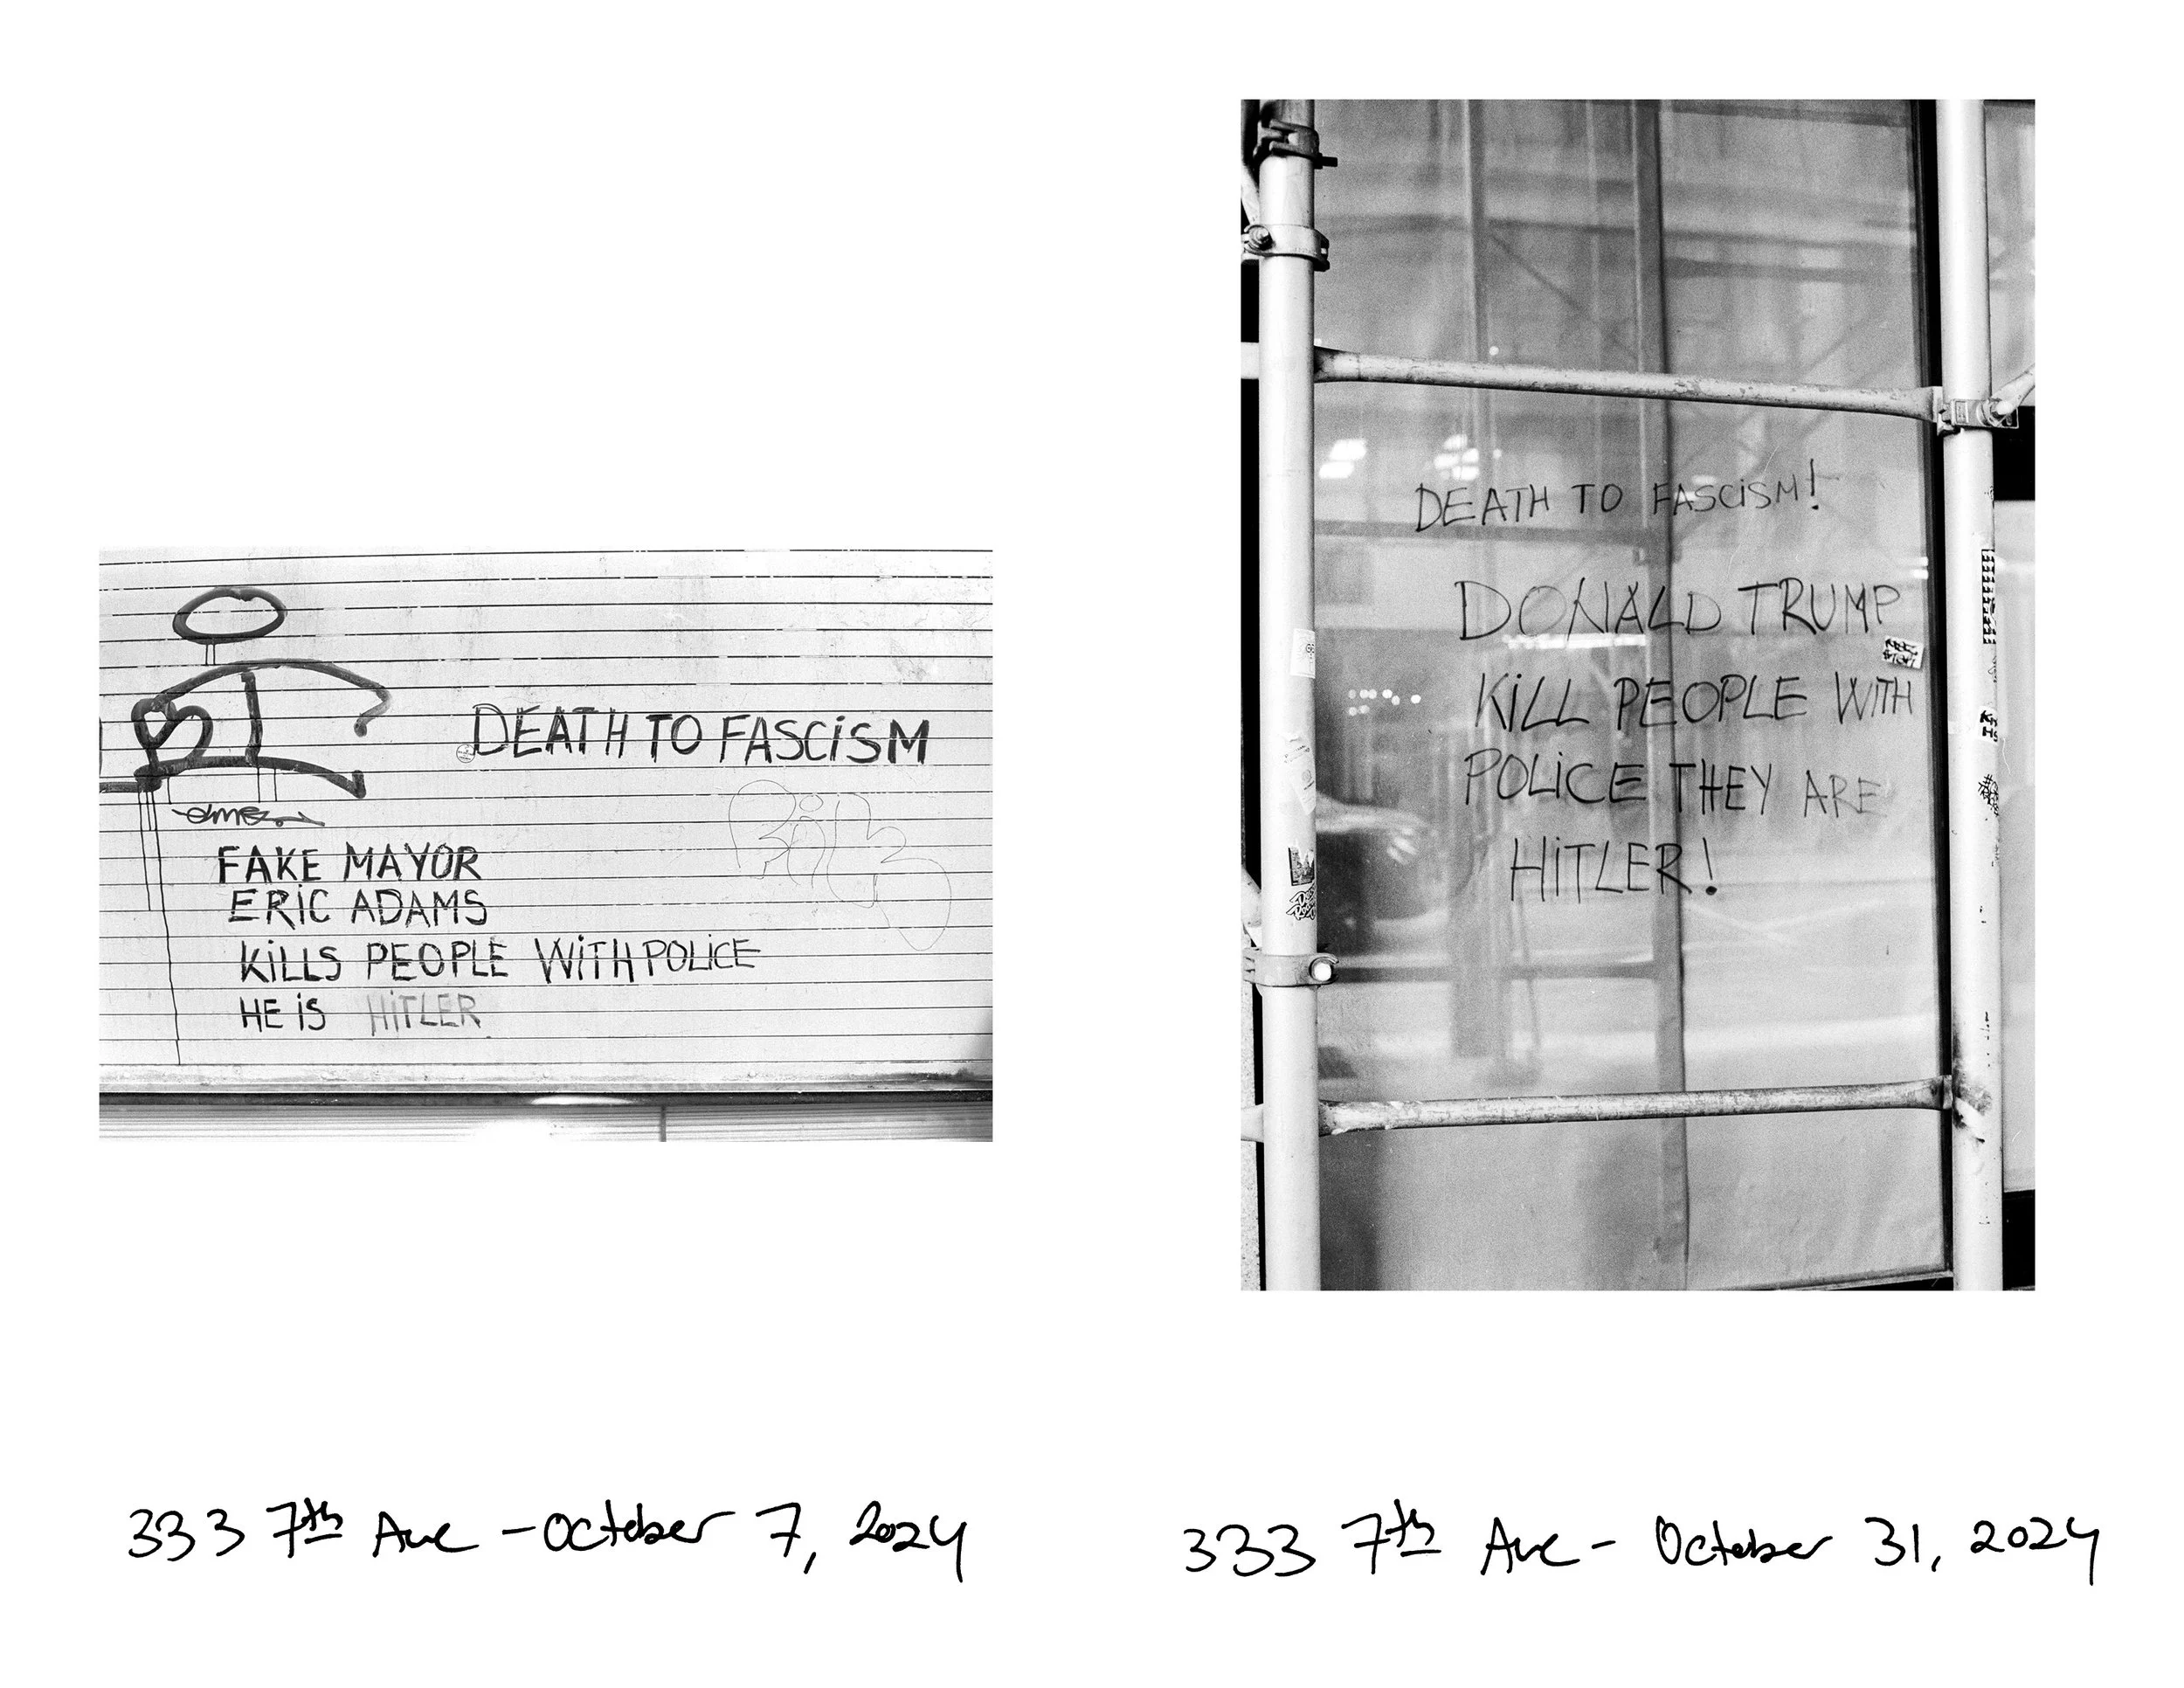 DEATH TO FASCiSM
FAKE MAYOR
ERiC ADAMS
KiLLS PEOPLE WiTH POLiCE
HE iS HiTLER
DEATH TO FASCiSM!
DONALD TRUMP
KiLL PEOPLE WiTH
POLiCE THEY ARE
HiTLER!
333 7th Ave - October 7, 2024
333 7th Ave - October 31, 2024